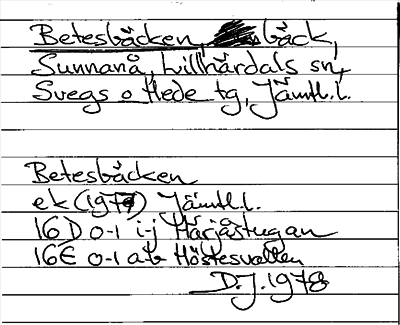 Betesbäcken, bäck,
Sunnanå, Lillhärdals sn,
Svegs o Hede tg, Jämtl.l.
Betesbäcken
ek (1971) Jämtl.l.
16D 0-1 i-j Härjåstugan
16E 0-1 a-b Höstesvallen
D.J. 1978